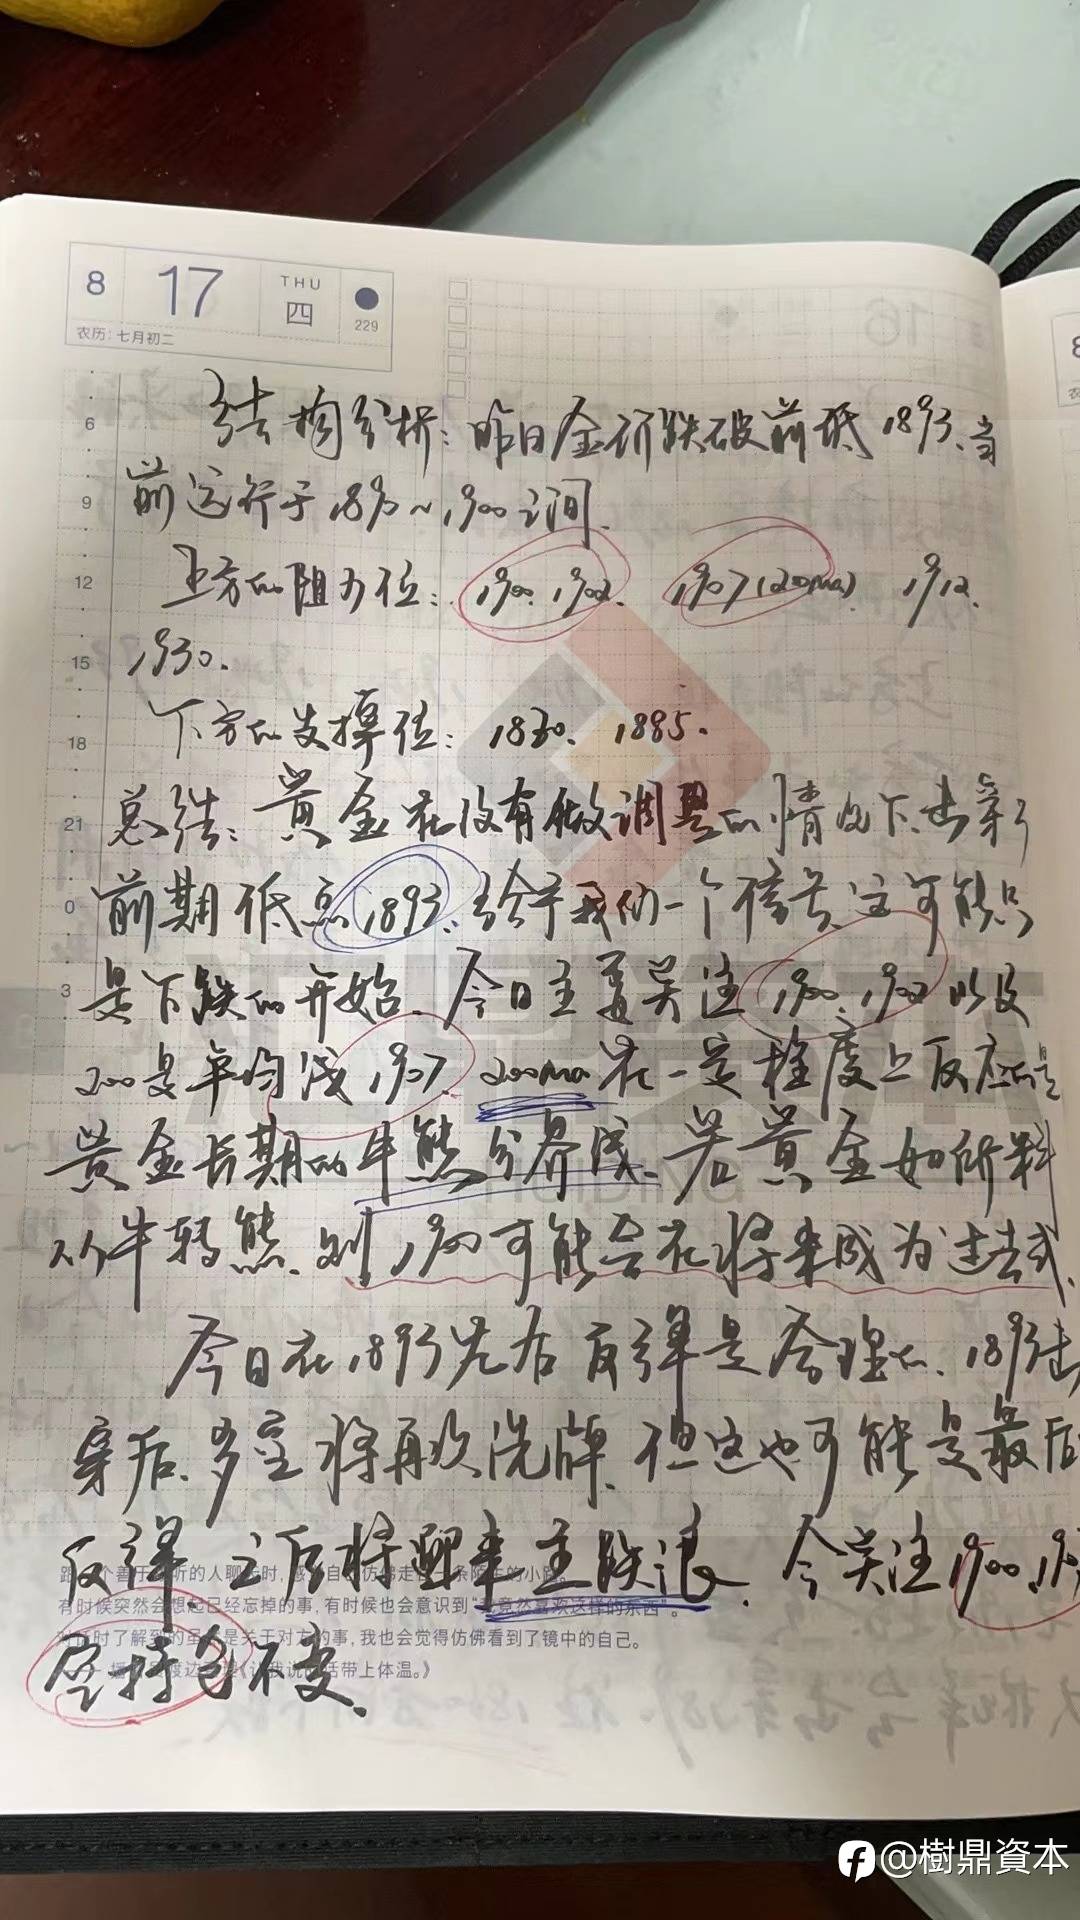 8 17 THU 四 229
农历:七月初二
16
6 结构分析:昨日金价跌破前低1893、当
9 前运行于1890~1900之间.
12 上方的阻力位: 1900、1902、 1907(200ma) 1912、
15 1930.
18 下方的支撑位: 1880、 1885.
21 总结:黄金在没有做调整的情况下,击穿了
0 前期低点1893、给予我们一个信号,这可能只
3 是下跌的开始、今日主要关注1900、1902以及
200是平均线1907、200ma在一定程度上反应的是
黄金长期的牛熊分界线、若黄金如所料
从牛转熊、则1900可能会在将来成为过去式、
今日在1893先后反弹是合理的、1893击
穿后、多空将再次洗牌、但这也可能是最后
反弹、之后将迎来主跌浪、今关注1900、
空持仓不变、
有时候突然会想起已经忘掉的事,有时候也会意识到“竟然喜欢这样的东西”。
时了解到的虽是关于对方的事,我也会觉得仿佛看到了镜中的自己。
HUIDING
@樹鼎資本